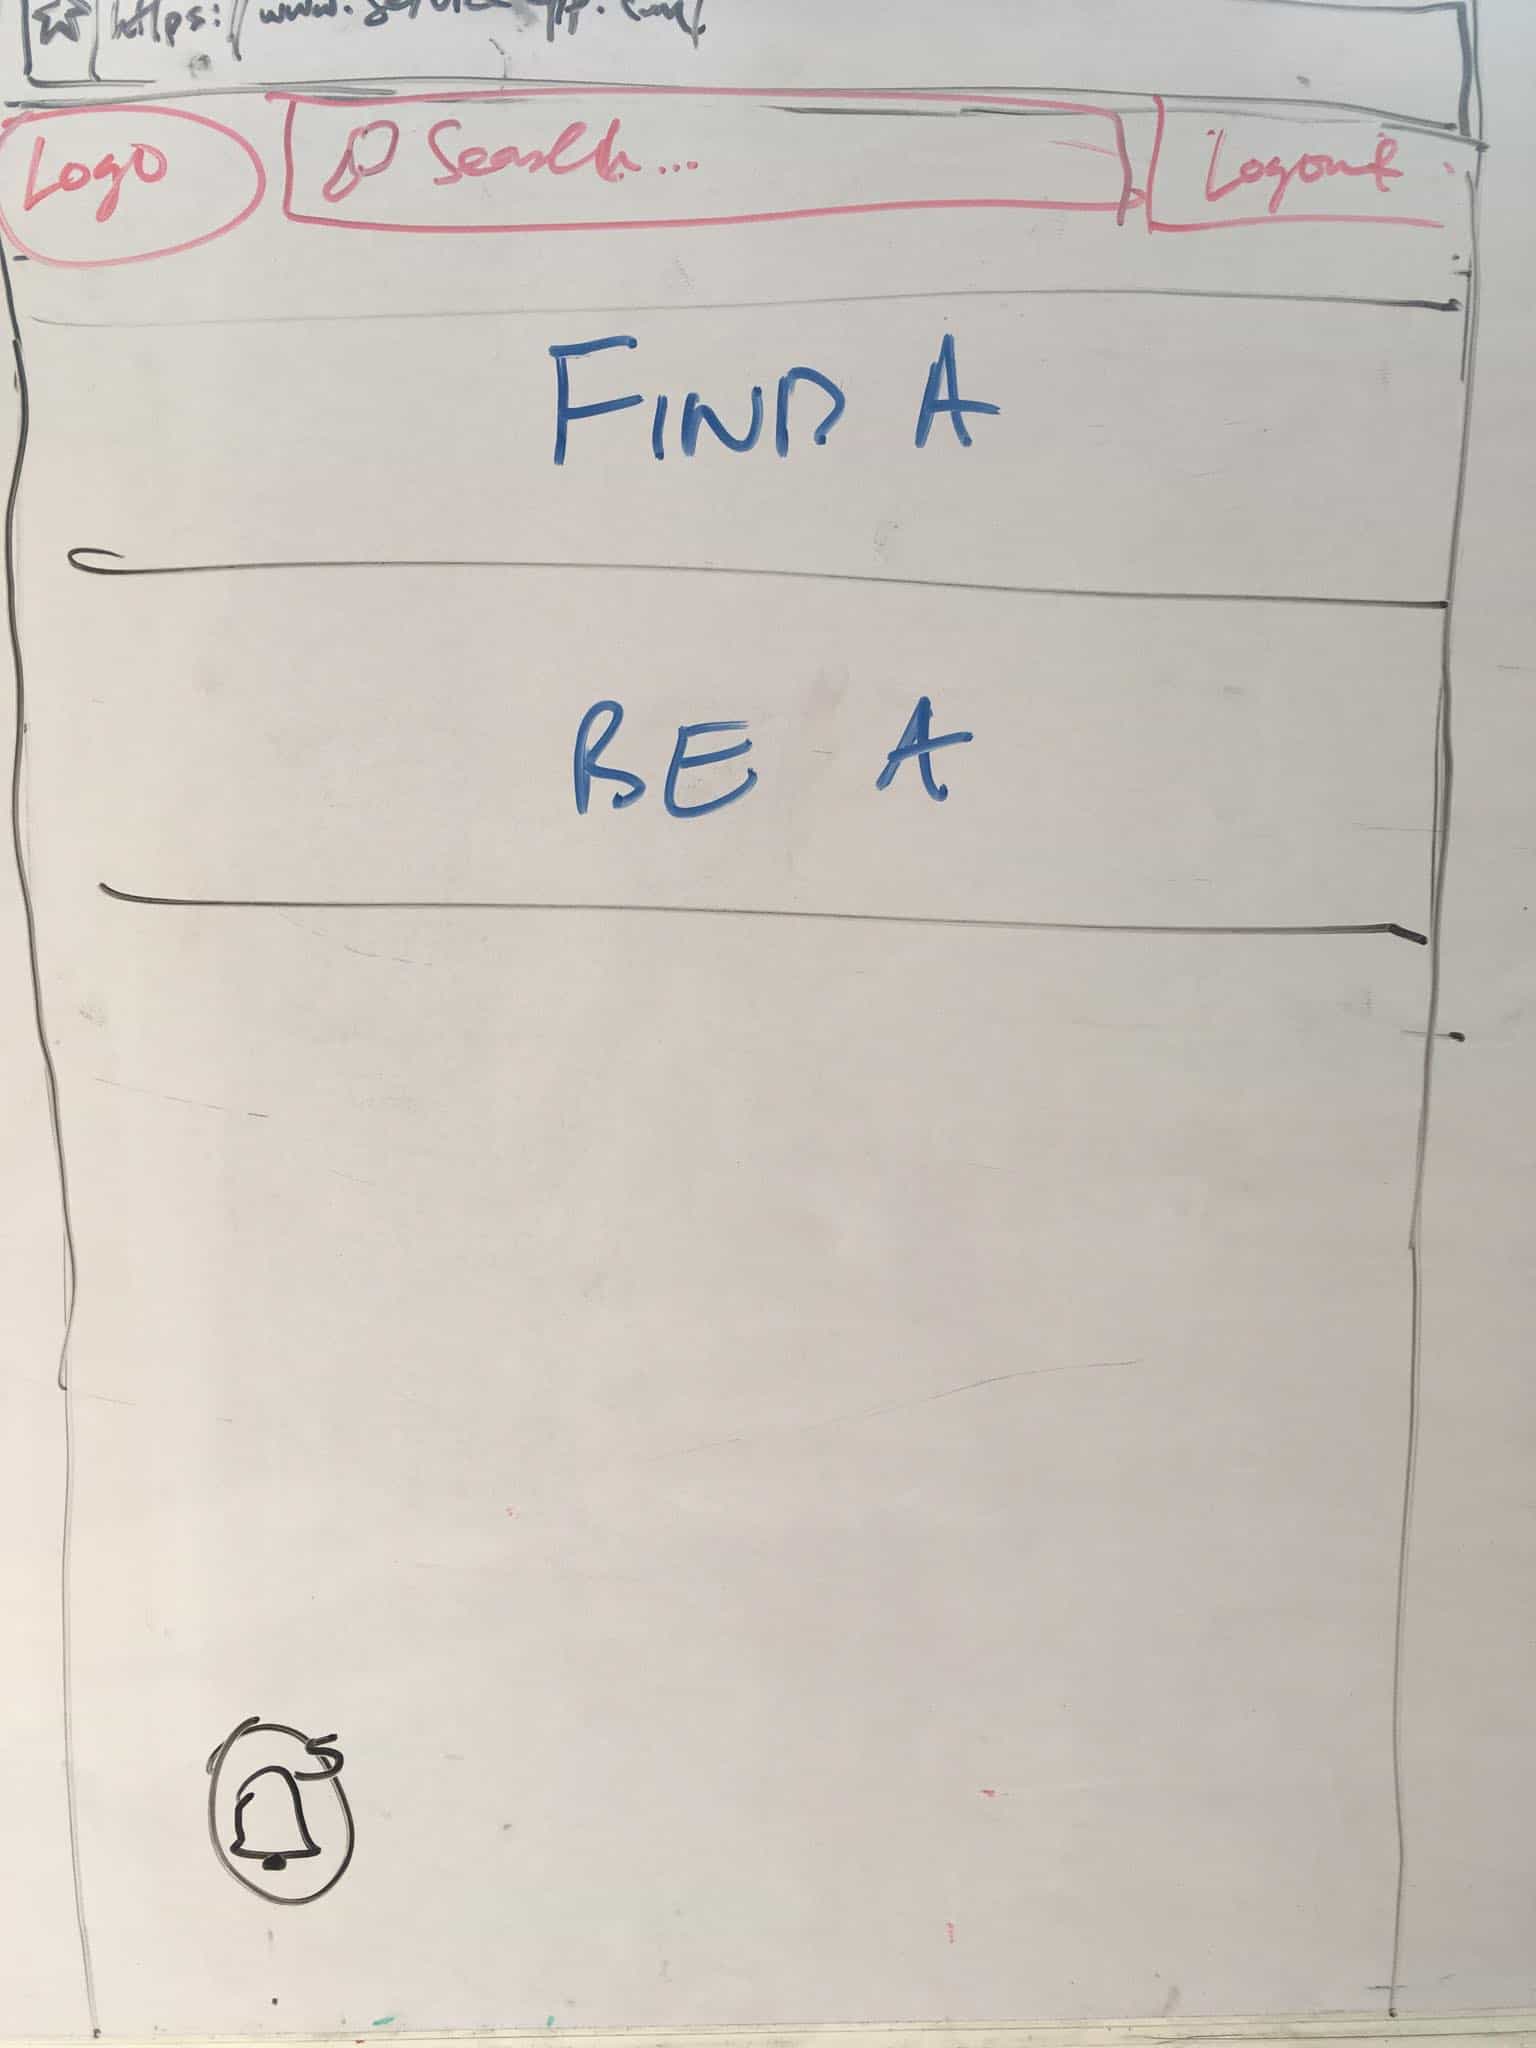 https://www.service
Logo
Search...
Logout
FIND A
BE A